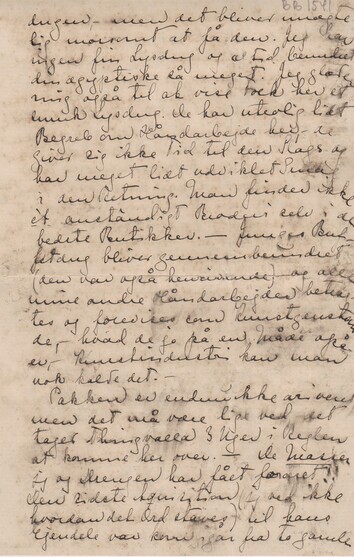 BB 1541
dugen – men det bliver
morsomt at få den. Jeg har
ingen fin Lysdug og a
din ægyptiske så meget. Jeg
mig også til at vise her et
smuk Lysdug. De har utrolig lidt
Begreb om Håndarbejde her – de
giver sig ikke Tid til den Slags og
har meget lidt udviklet Smag
i den Retning. Man finder ikke
et anständigt Broderi selv i de
bedste Butikker. –
bliver gennembeundret
(den var også henrivende) og alle
mine andre Håndarbejder betrag-
tes og forevises som Kunstgenstan-
de, hvad de jo på en Måde også
er, – Kunstindustri kan man
nok kalde det. –
Pakken er endnu ikke ariveret
men det må være lige ved, det
taget Thingvalla 3 Uger i Reglen
at komme her over. – De
og Drengen har fået
den sidste Aqusition (jeg ved ikke
hvordan det Ord staves) til hans
Ejendele var kom